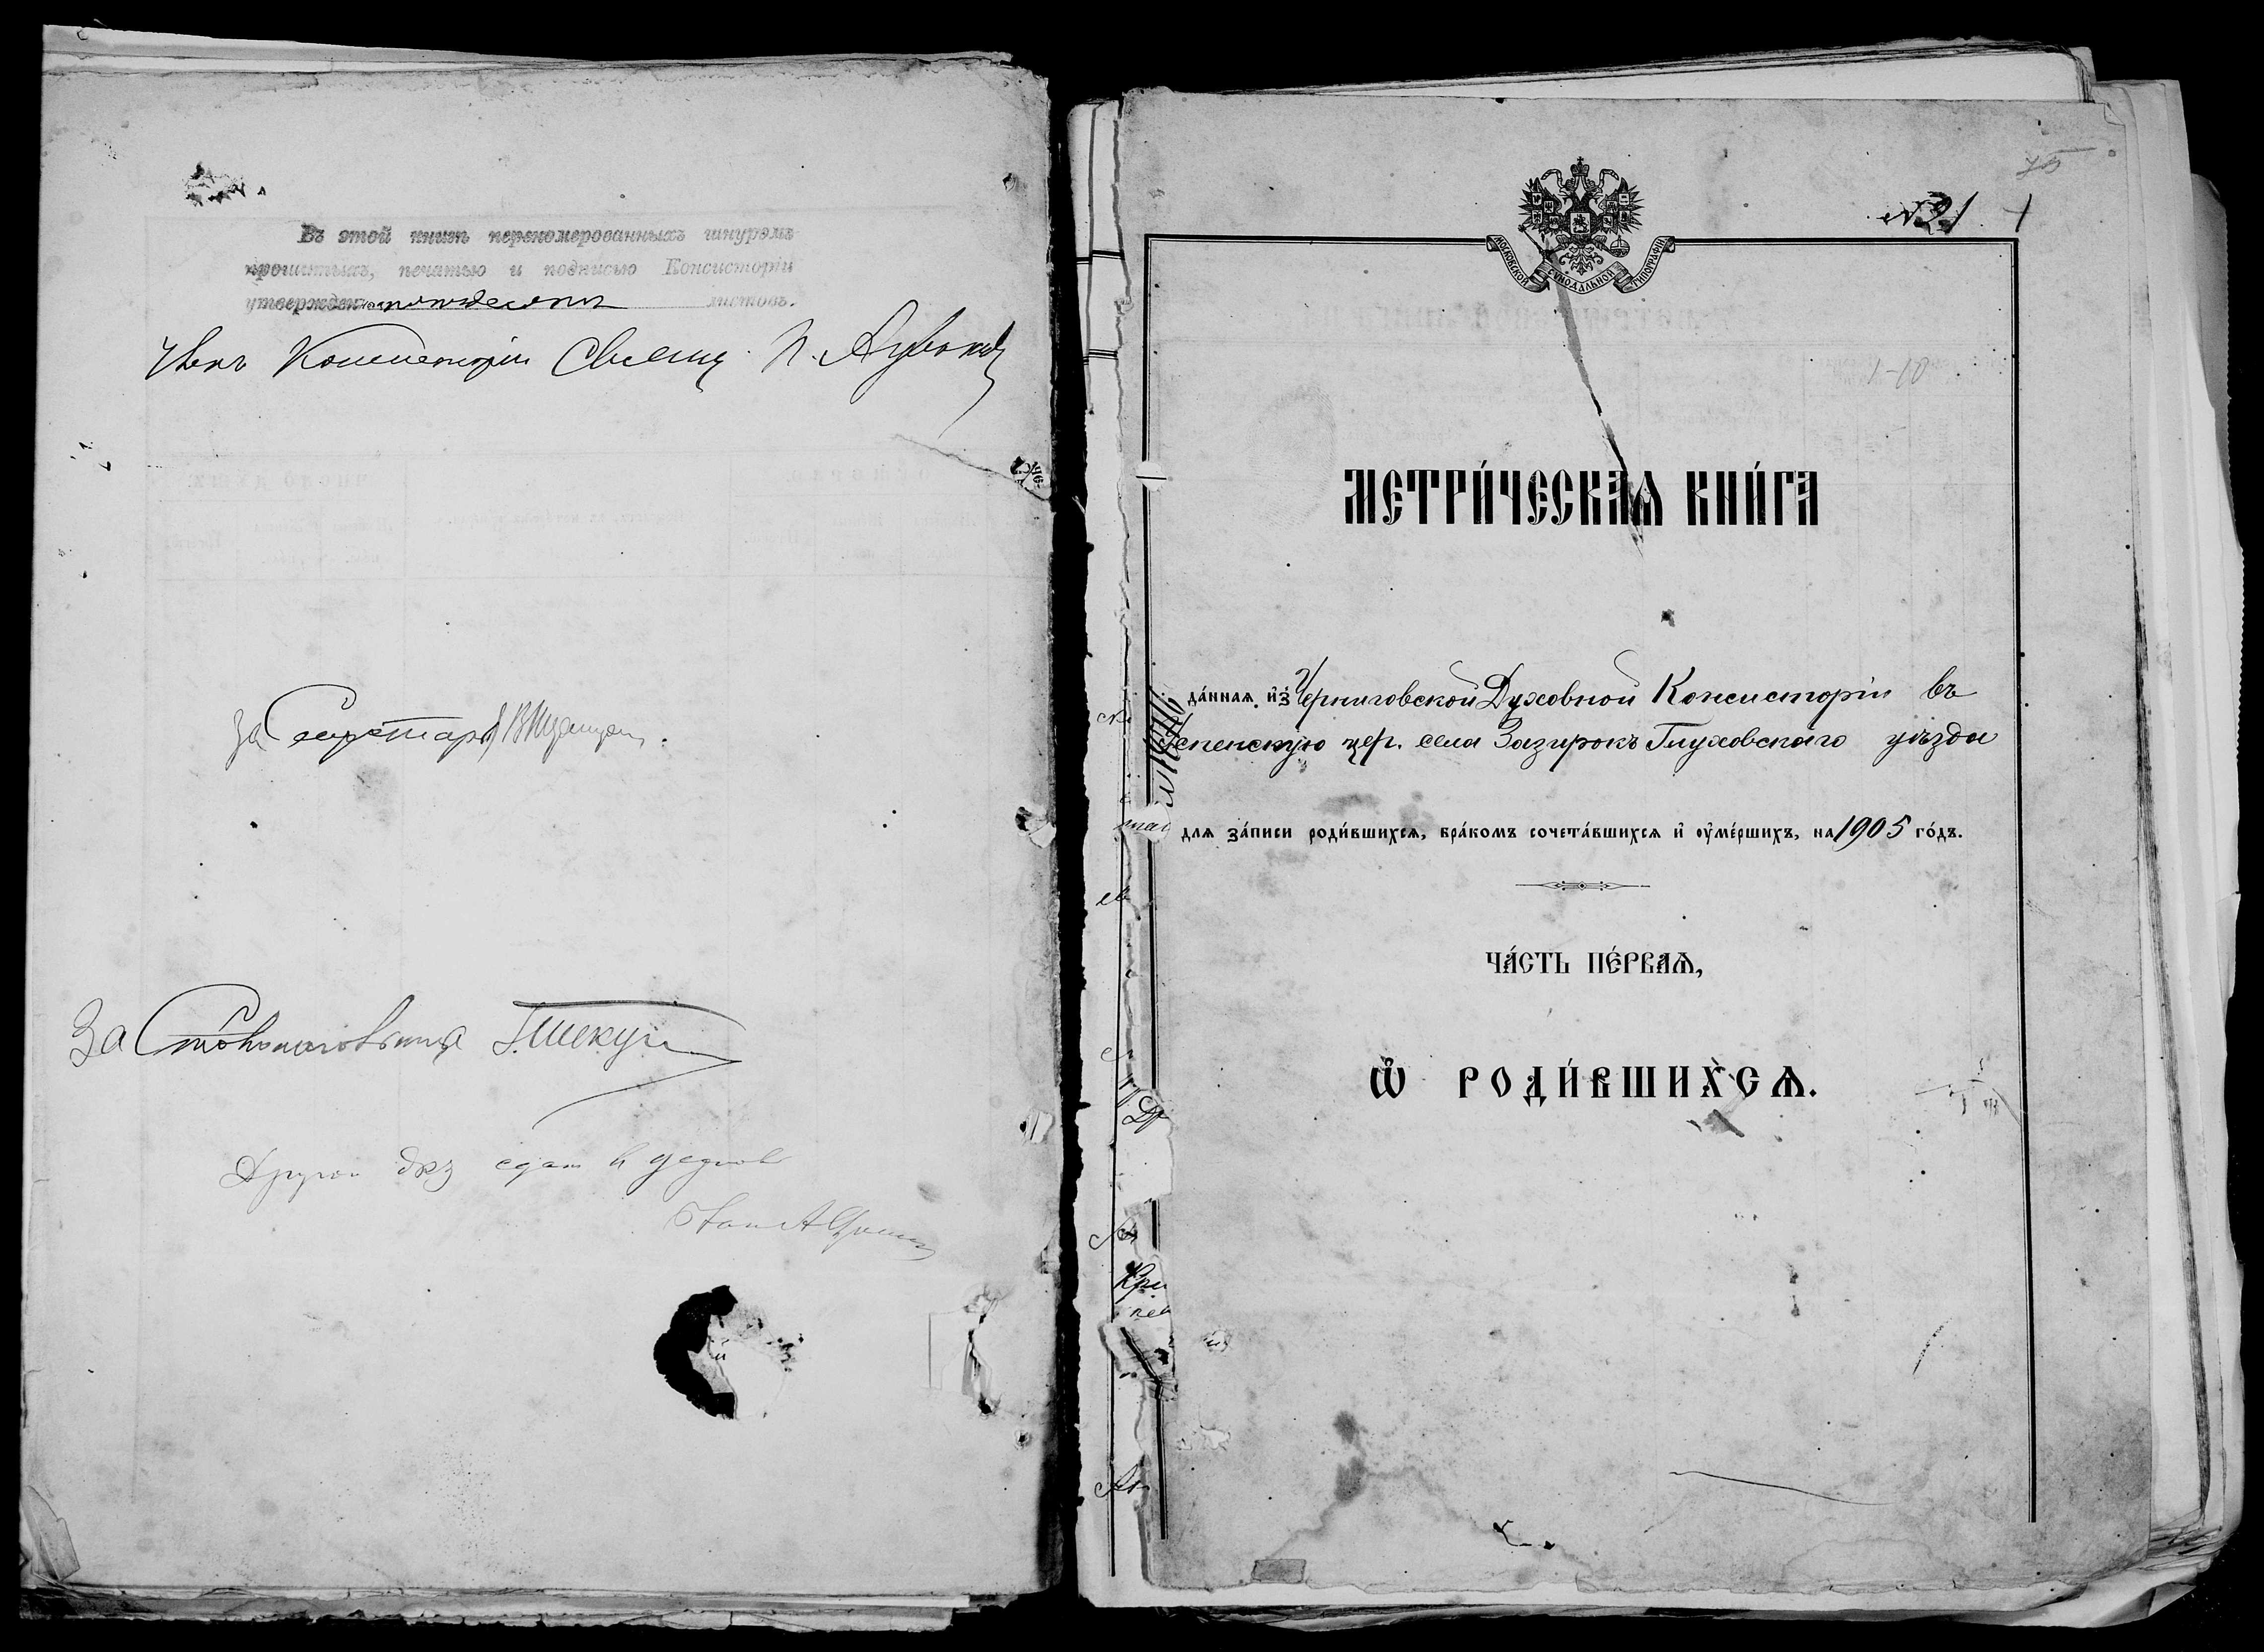 Въ этой книгѣ перенумерованныхъ шнуромъ
прошитыхъ, печатью и подписью Консисторіи
утвержденныхъ пятьдесятъ листовъ.
Членъ Консисторіи Священ. П.
За Секретаря
За Столоначальника
Другой экз сдан в
75
№ 21 1
МОСКОВСКОЙ СѴНОДАЛЬНОЙ ТИПОГРАФІИ
1-10
МЕТРИ́ЧЕСКАѦ КНИ́ГА
да́ннаѧ и҆зъ Черниговской Духовной Консисторіи въ
Успенскую цер. села Зазирокъ Глуховскаго уѣзда
длѧ за́писи роди́вшихсѧ, бра́комъ сочета́вшихсѧ и҆ ᲂу҆ме́ршихъ, на 1905 го́дъ.
ЧА́СТЬ ПЕ́РВАѦ,
Ѽ РОДИ́ВШИХСѦ.